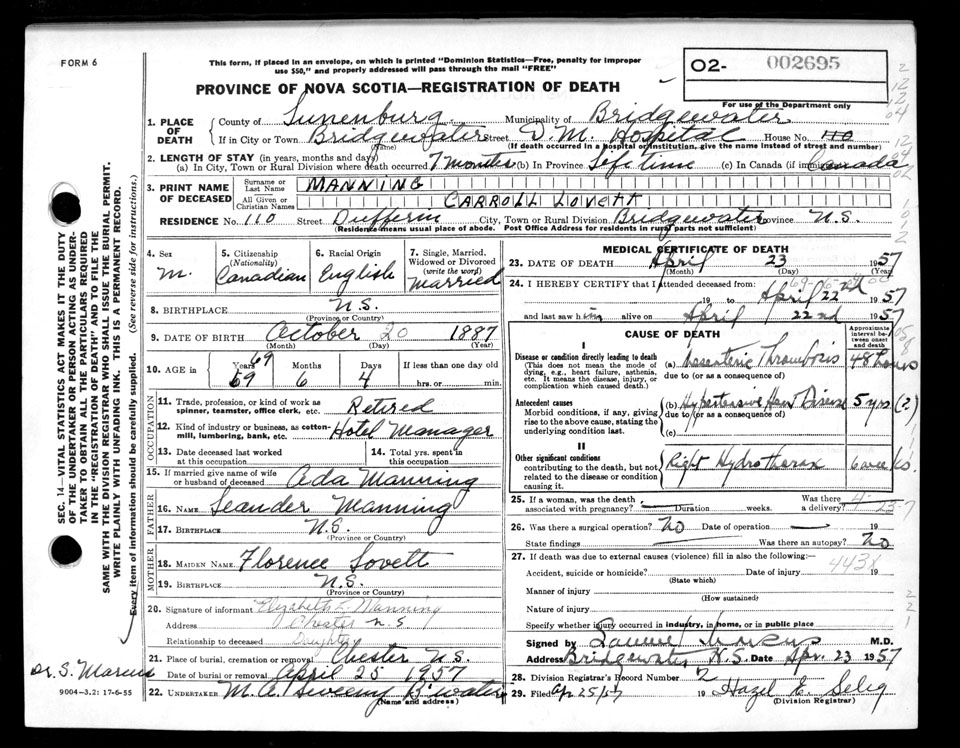 FORM 6
This form, if placed in an envelope, on which is printed "Dominion Statistics—Free, penalty for improper
use $50," and properly addressed will pass through the mail "FREE"
O2- 002695
PROVINCE OF NOVA SCOTIA—REGISTRATION OF DEATH
For use of the Department only
1. PLACE OF DEATH
County of Lunenburg Municipality of Bridgewater
If in City or Town Bridgewater Street D.M. Hospital House No. 110
(Name) (If death occurred in a hospital or institution, give the name instead of street and number)
2. LENGTH OF STAY (in years, months and days)
(a) In City, Town or Rural Division where death occurred 7 months (b) In Province Life time (c) In Canada (if immigrant) Canada
3. PRINT NAME OF DECEASED
Surname or Last Name MANNING
All Given or Christian Names CARROLL LOVETT
RESIDENCE No. 110 Street Dufferin City, Town or Rural Division Bridgewater Province N.S.
(Residence means usual place of abode. Post Office Address for residents in rural parts not sufficient)
4. Sex M.
5. Citizenship (Nationality) Canadian
6. Racial Origin English
7. Single, Married, Widowed or Divorced (write the word) Married
8. BIRTHPLACE N.S.
(Province or Country)
9. DATE OF BIRTH October 20 1887
(Month) (Day) (Year)
10. AGE in Years 69 69 Months 6 Days 4 If less than one day old
hrs. or min.
OCCUPATION
11. Trade, profession, or kind of work as
spinner, teamster, office clerk, etc. Retired
12. Kind of industry or business, as cotton-
mill, lumbering, bank, etc. Hotel Manager
13. Date deceased last worked
at this occupation
14. Total yrs. spent in
this occupation
15. If married give name of wife
or husband of deceased Ada Manning
FATHER
16. NAME Leander Manning
17. BIRTHPLACE N.S.
(Province or Country)
MOTHER
18. MAIDEN NAME Florence Lovett
19. BIRTHPLACE N.S.
(Province or Country)
20. Signature of informant Elizabeth L. Manning
Address Chester N.S.
Relationship to deceased Daughter
21. Place of burial, cremation or removal Chester N.S.
Date of burial or removal April 25 1957
22. UNDERTAKER M.A. Sweeny B'water
(Name and address)
MEDICAL CERTIFICATE OF DEATH
23. DATE OF DEATH April 23 1957
(Month) (Day) (Year)
24. I HEREBY CERTIFY that I attended deceased from:
19 to April 22nd 1957
and last saw him alive on April 22nd 1957
CAUSE OF DEATH
Approximate interval between onset and death
I
Disease or condition directly leading to death
(This does not mean the mode of
dying, e.g., heart failure, asthenia,
etc. It means the disease, injury, or
complication which caused death.)
(a) Mesenteric Thrombosis 48 hours
due to (or as a consequence of)
Antecedent causes
Morbid conditions, if any, giving
rise to the above cause, stating the
underlying condition last.
(b) Hypertensive Heart Disease 5 yrs (?)
due to (or as a consequence of)
(c)
II
Other significant conditions
contributing to the death, but not
related to the disease or condition
causing it.
Right Hydrothorax 6 weeks.
25. If a woman, was the death
associated with pregnancy? Duration weeks. Was there a delivery?
26. Was there a surgical operation? No Date of operation 19
State findings Was there an autopsy? No
27. If death was due to external causes (violence) fill in also the following:—
443X
Accident, suicide or homicide? Date of injury 19
(State which)
Manner of injury
(How sustained)
Nature of injury
Specify whether injury occurred in industry, in home, or in public place
Signed by M.D.
Address Bridgewater N.S. Date Apr. 23 1957
28. Division Registrar's Record Number 2
29. Filed Apr 25/57 19 Hazel E. Selig
(Division Registrar)
SEC. 14—VITAL STATISTICS ACT MAKES IT THE DUTY
OF THE UNDERTAKER OR PERSON ACTING AS UNDER-
TAKER TO OBTAIN ALL THE PARTICULARS REQUIRED
IN THE "REGISTRATION OF DEATH" AND TO FILE THE
SAME WITH THE DIVISION REGISTRAR WHO SHALL ISSUE THE BURIAL PERMIT.
WRITE PLAINLY WITH UNFADING INK. THIS IS A PERMANENT RECORD.
Every item of information should be carefully supplied. (See reverse side for instructions.)
Dr. S. Marcus
9004-3.2: 17-6-55